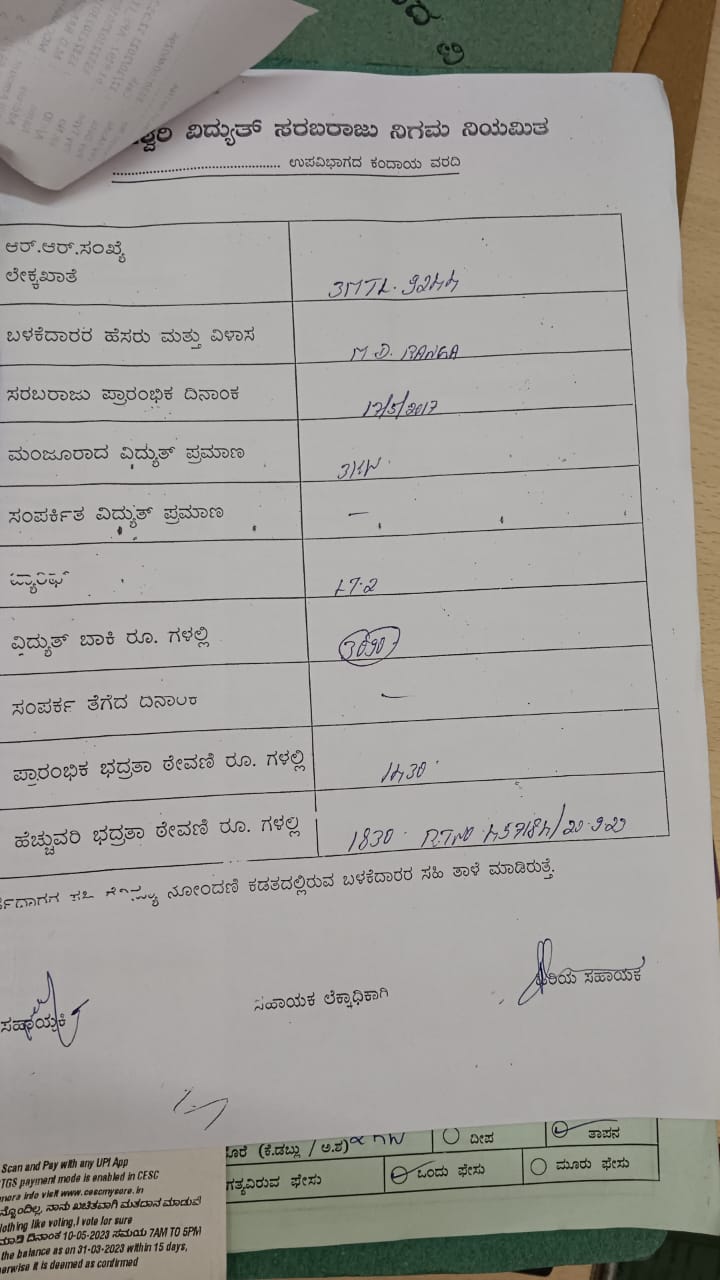 ವಿದ್ಯುತ್ ಸರಬರಾಜು ನಿಗಮ ನಿಯಮಿತ
........................................ ಉಪವಿಭಾಗದ ಕಂದಾಯ ವರದಿ
ಆರ್.ಆರ್.ಸಂಖ್ಯೆ
ಲೇಕ್ಕಖಾತೆ 3MTL. 9244
ಬಳಕೆದಾರರ ಹೆಸರು ಮತ್ತು ವಿಳಾಸ M.D. RANGA
ಸರಬರಾಜು ಪ್ರಾರಂಭಿಕ ದಿನಾಂಕ 17/5/2017
ಮಂಜೂರಾದ ವಿದ್ಯುತ್ ಪ್ರಮಾಣ 3KW
ಸಂಪರ್ಕಿತ ವಿದ್ಯುತ್ ಪ್ರಮಾಣ —
ಟ್ಯಾರಿಫ್ LT-2
ವಿದ್ಯುತ್ ಬಾಕಿ ರೂ. ಗಳಲ್ಲಿ
ಸಂಪರ್ಕ ತೆಗೆದ ದಿನಾಂಕ —
ಪ್ರಾರಂಭಿಕ ಭದ್ರತಾ ಠೇವಣಿ ರೂ. ಗಳಲ್ಲಿ 1430
ಹೆಚ್ಚುವರಿ ಭದ್ರತಾ ಠೇವಣಿ ರೂ. ಗಳಲ್ಲಿ 1830 R.TNO 457184/20.9.22
ನೋಂದಣಿ ಕಡತದಲ್ಲಿರುವ ಬಳಕೆದಾರರ ಸಹಿ ತಾಳೆ ಮಾಡಿರುತ್ತೆ.
ಸಹಾಯಕಿ ಸಹಾಯಕ ಲೆಕ್ಕಾಧಿಕಾರಿ ಹಿರಿಯ ಸಹಾಯಕ
(ಕೆ.ಡಬ್ಲು / ಅ.ಶ) KW ದೀಪ ತಾಪನ
ಗತ್ಯವಿರುವ ಫೇಸು ಒಂದು ಫೇಸು ಮೂರು ಫೇಸು
Scan and Pay with any UPI App
TGS payment mode is enabled in CESC
more info visit www.cescmysore.in
ನಾನು ಖಚಿತವಾಗಿ ಮತದಾನ ಮಾಡುವೆ
Nothing like voting,I vote for sure
ಮಾಡಿ ದಿನಾಂಕ 10-05-2023 ಸಮಯ 7AM TO 5PM
the balance as on 31-03-2023 within 15 days,
erwise it is deemed as confirmed